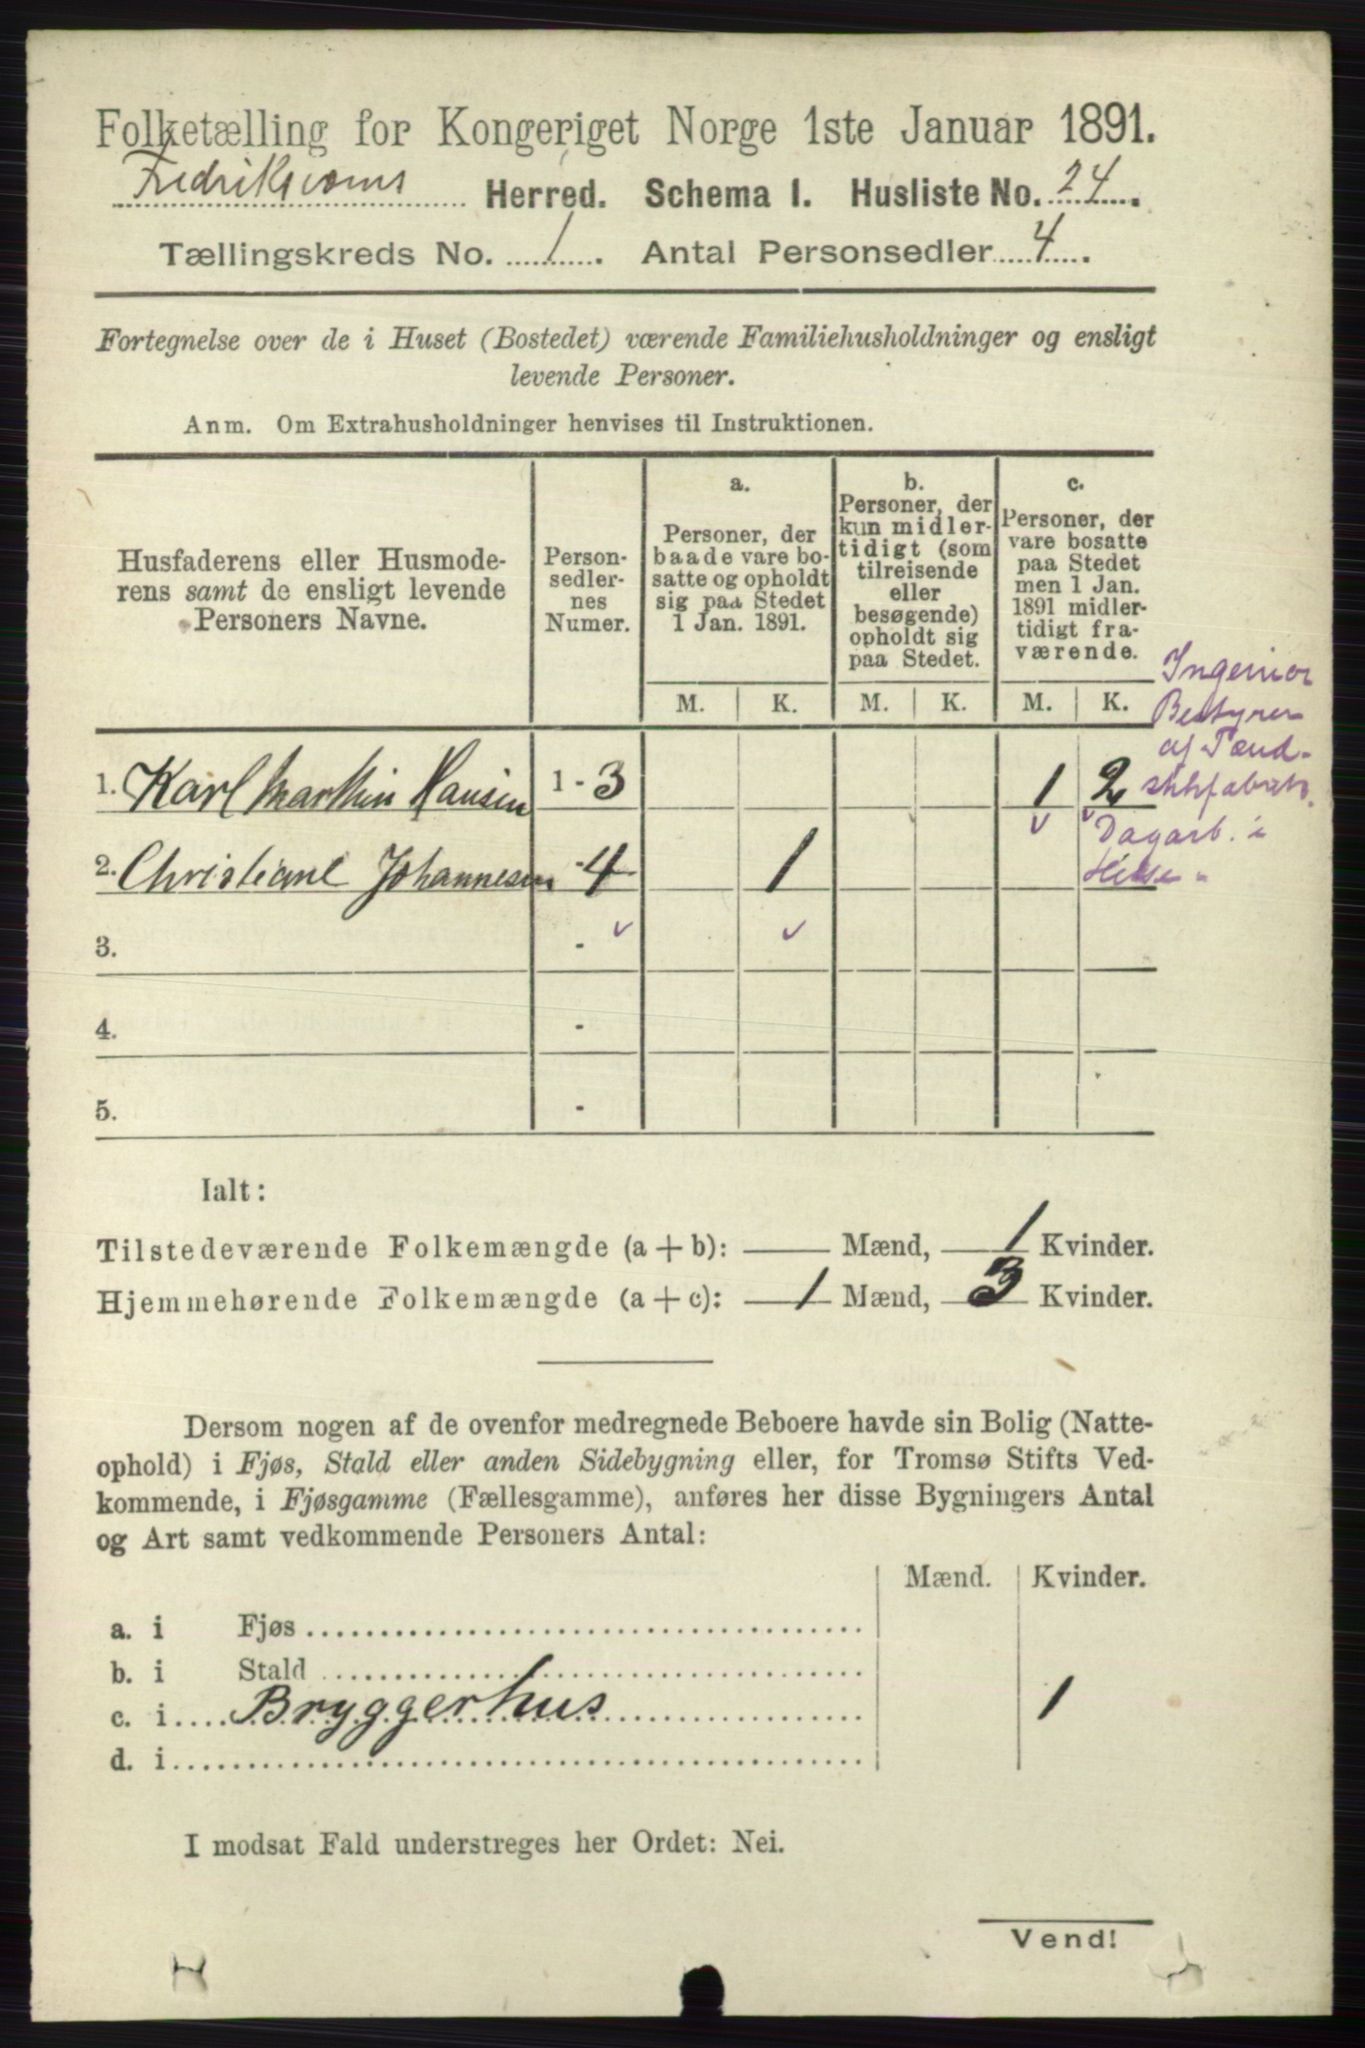 Folketælling for Kongeriget Norge 1ste Januar 1891.
Fredriksværns Herred. Schema I. Husliste No. 24.
Tællingskreds No. 1. Antal Personsedler 4.
Fortegnelse over de i Huset (Bostedet) værende Familiehusholdninger og ensligt
levende Personer.
Anm. Om Extrahusholdninger henvises til Instruktionen.
Husfaderens eller Husmode-
rens samt de ensligt levende
Personers Navne.
Person-
sedler-
nes
Numer.
a.
Personer, der
baade vare bo-
satte og opholdt
sig paa Stedet
1 Jan. 1891.
b.
Personer, der
kun midler-
tidigt (som
tilreisende
eller
besøgende)
opholdt sig
paa Stedet.
c.
Personer, der
vare bosatte
paa Stedet
men 1 Jan.
1891 midler-
tidigt fra-
værende.
M. K. M. K. M. K.
Ingeniør
Bestyrer
af Tænd-
stikfabrik.
1. Karl Martin Hansen 1-3 1 2
Dagarb. i
2. Christiane Johannesen -4 1
3. -
4. -
5. -
Ialt:
Tilstedeværende Folkemængde (a + b): — Mænd, 1 Kvinder.
Hjemmehørende Folkemængde (a + c): 1 Mænd, 3 Kvinder.
Dersom nogen af de ovenfor medregnede Beboere havde sin Bolig (Natte-
ophold) i Fjøs, Stald eller anden Sidebygning eller, for Tromsø Stifts Ved-
kommende, i Fjøsgamme (Fællesgamme), anføres her disse Bygningers Antal
og Art samt vedkommende Personers Antal:
Mænd. Kvinder.
a. i Fjøs
b. i Stald
c. i Bryggerhus 1
d. i
I modsat Fald understreges her Ordet: Nei.
Vend!